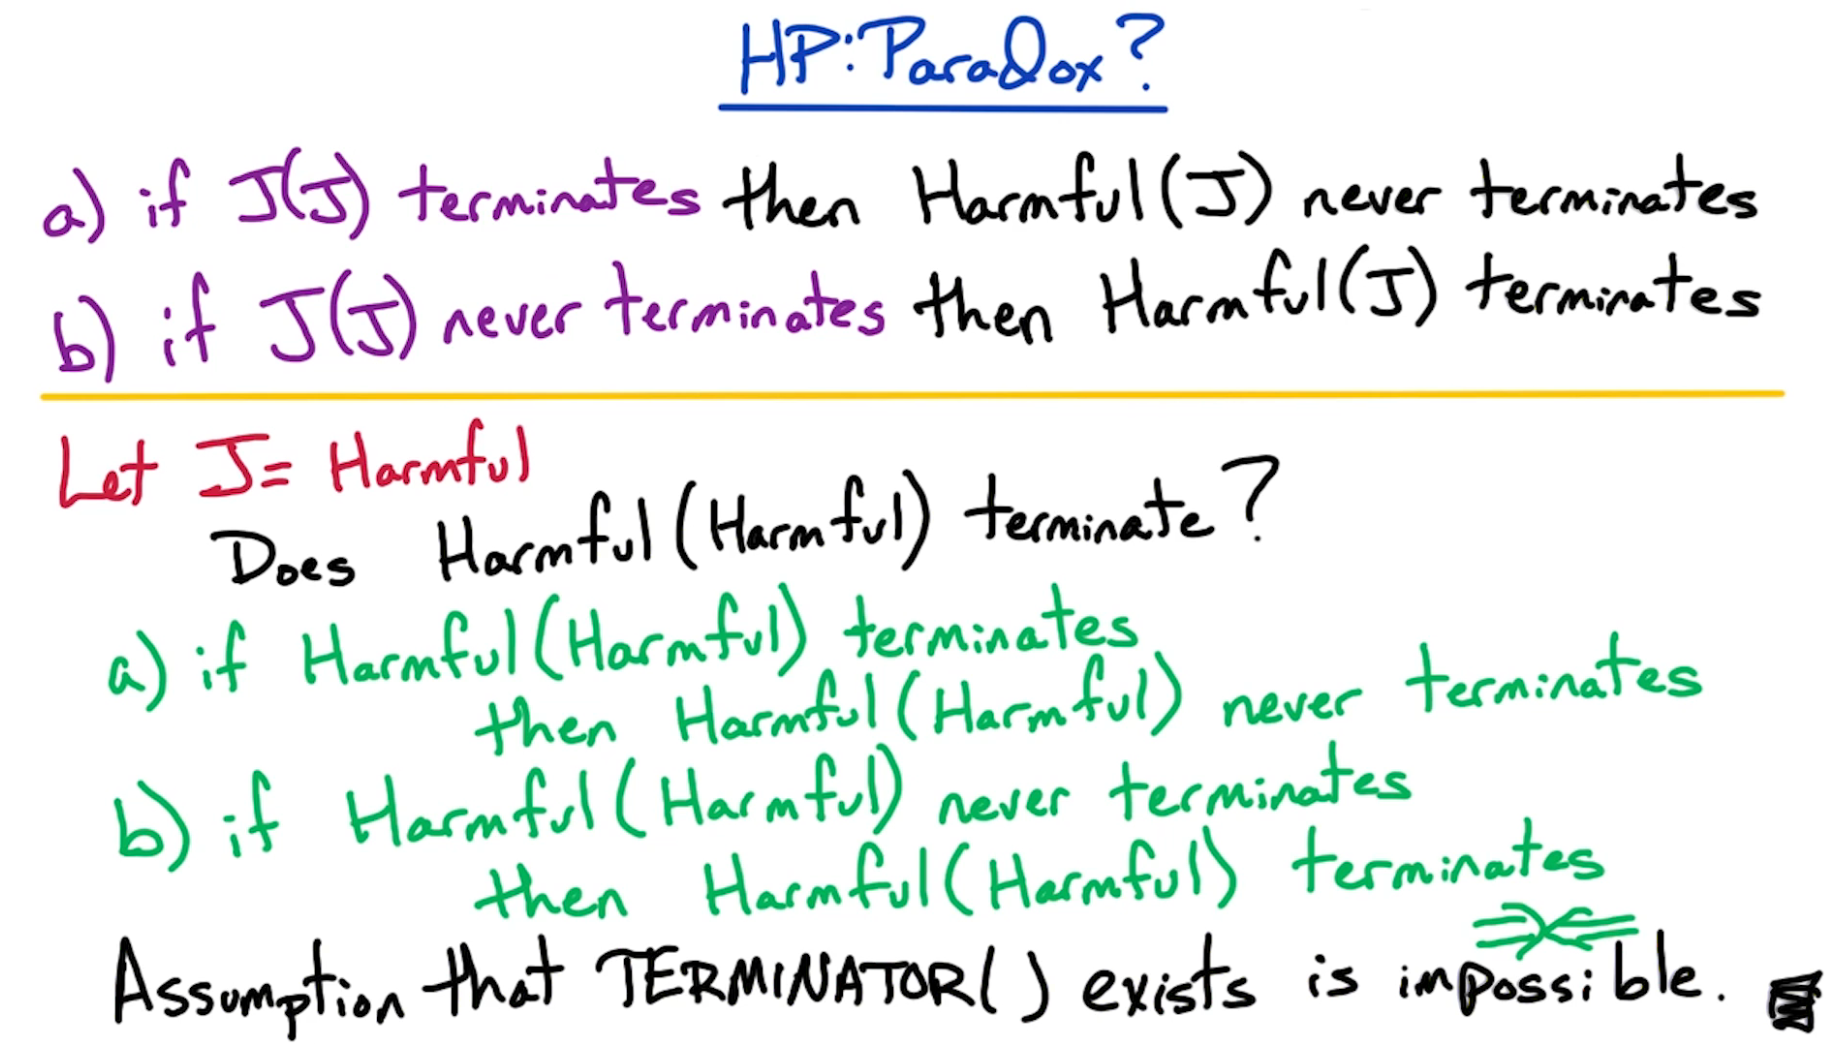 HP: Paradox?
a) if J(J) terminates then Harmful(J) never terminates
b) if J(J) never terminates then Harmful(J) terminates
Let J = Harmful
Does Harmful(Harmful) terminate?
a) if Harmful(Harmful) terminates
then Harmful(Harmful) never terminates
b) if Harmful(Harmful) never terminates
then Harmful(Harmful) terminates
Assumption that TERMINATOR() exists is impossible.